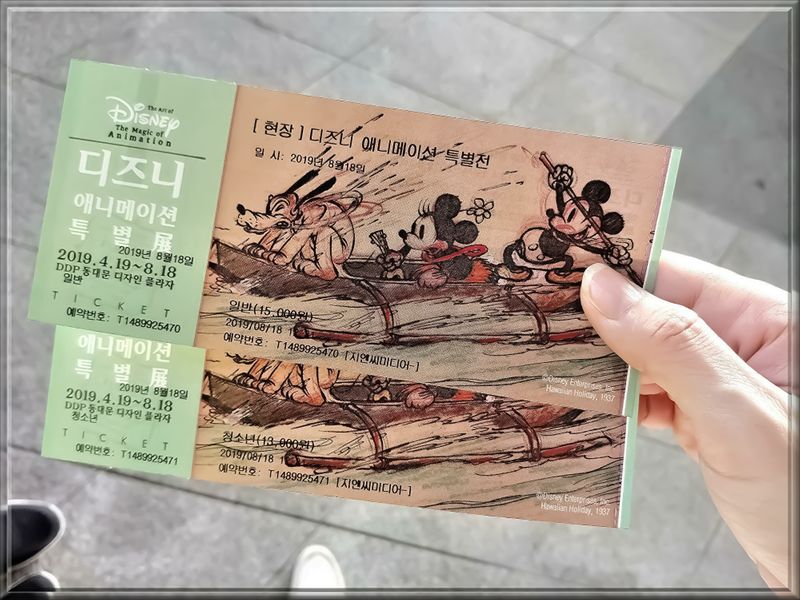 The Art of
Disney
The Magic of
Animation
디즈니
애니메이션
특별展
2019년 8월18일
2019.4.19~8.18
DDP 동대문 디자인 플라자
일반
TICKET
예약번호: T1489925470
[ 현장 ] 디즈니 애니메이션 특별전
일 시: 2019년 8월18일
일반(15,000원)
2019/08/18 1
예약번호: T1489925470 [지엔씨미디어-]
©Disney Enterprises, Inc
Hawaiian Holiday, 1937
애니메이션
특별展
2019년 8월18일
2019.4.19~8.18
DDP 동대문 디자인 플라자
청소년
TICKET
예약번호: T1489925471
청소년(13,000원)
2019/08/18 1
예약번호: T1489925471 [지엔씨미디어-]
©Disney Enterprises, Inc
Hawaiian Holiday, 1937